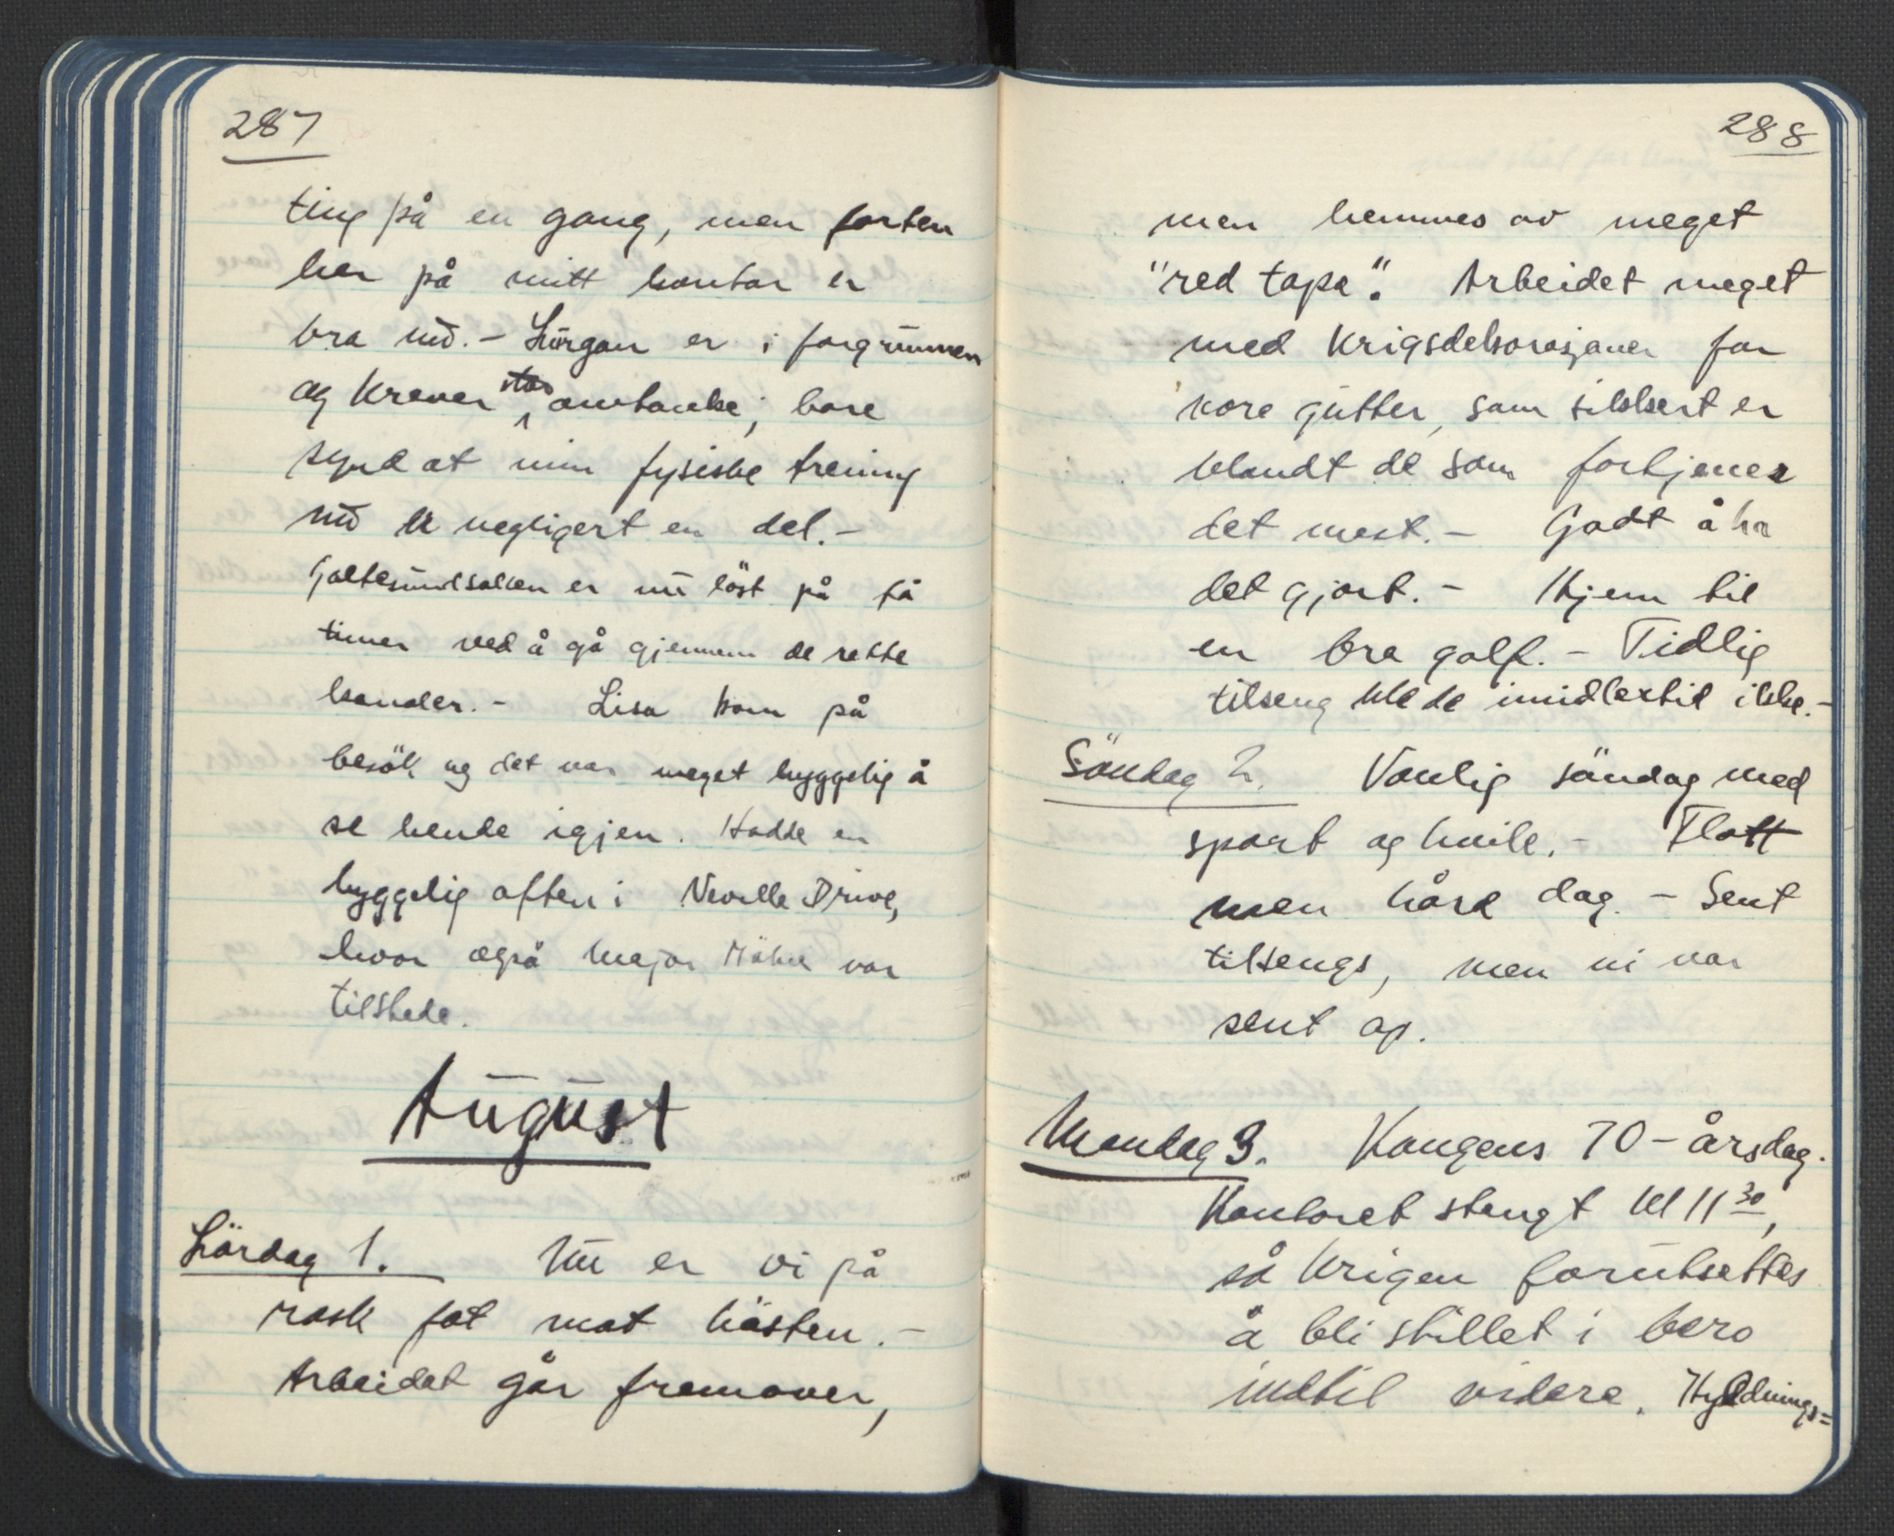 287
ting på en gang, men farten
her på mitt kontor er
bra nu. - Lürgan er i forgrunnen
og krever stor omtanke, bare
synd at min fysiske trening
nu er negligert en del. -
Galtesundsaken er nu löst på få
timer ved å gå gjennem de rette
kanaler. - Lisa kom på
besök og det var meget hyggelig å
se hende igjen. Hadde en
hyggelig aften i Neville Drive,
hvor også Major var
tilstede.
August
Lördag 1. Nu er vi på
rask fot mot hösten. -
Arbeidet går fremover,
288
men hemmes av meget
"red tape". Arbeidet meget
med Krigsdekorasjoner for
våre gutter, som sikkert er
blandt de som fortjener
det mest. - Godt å ha
det gjort. - Hjem til
en bra golf. - Tidlig
tilseng ble de imidlertid ikke. -
Söndag 2. Vanlig söndag med
sport og hvile. - Flott
men hård dag. - Sent
tilsengs, men vi var
sent op.
Mandag 3. Kongens 70-årsdag.
Kontoret stengt kl 11 30,
så krigen forutsettes
å bli stillet i bero
indtil videre. Hyldnings=